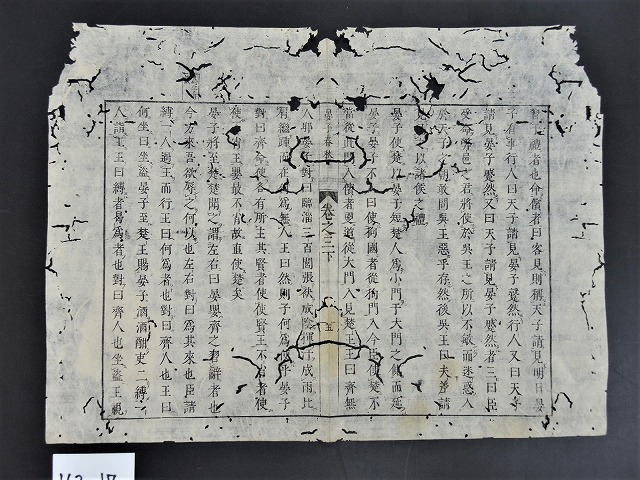 禮者也命儐者曰客見則稱天子請見明日晏
子有事行人曰天子請見晏子蹵然行人又曰天子
請見晏子蹵然又曰天子請見晏子蹵然者三曰臣
受命邑之君將使於吳王之所以不敏而迷惑入
於天子朝敢問吳王惡乎存然後吳王曰夫差請
見以諸侯之禮
晏子使楚以晏子短楚人為小門于大門之側而延
晏子晏子不曰使狗國者從狗門入今臣使楚不
當從此門入儐者更道從大門入見楚王王曰齊無
晏子春秋
卷之三下
五
人耶晏對曰臨淄三百閭張袂成陰揮汗成雨比
肩繼踵而在何為無人王曰然則子何為使乎晏子
對曰齊命使各有所主其賢者使使賢王不肖者使
使不肖王嬰最不肖故直使楚矣
晏子將至楚楚聞之謂左右曰晏嬰齊之習辭者也
今方來吾欲辱之何以也左右對曰為其來也臣請
縛一人過王而行王曰何為者也對曰齊人也王曰
何坐曰坐盜晏子至楚王賜晏子酒酒酣吏二縛一
人詣王王曰縛者曷為者也對曰齊人也坐盜王視